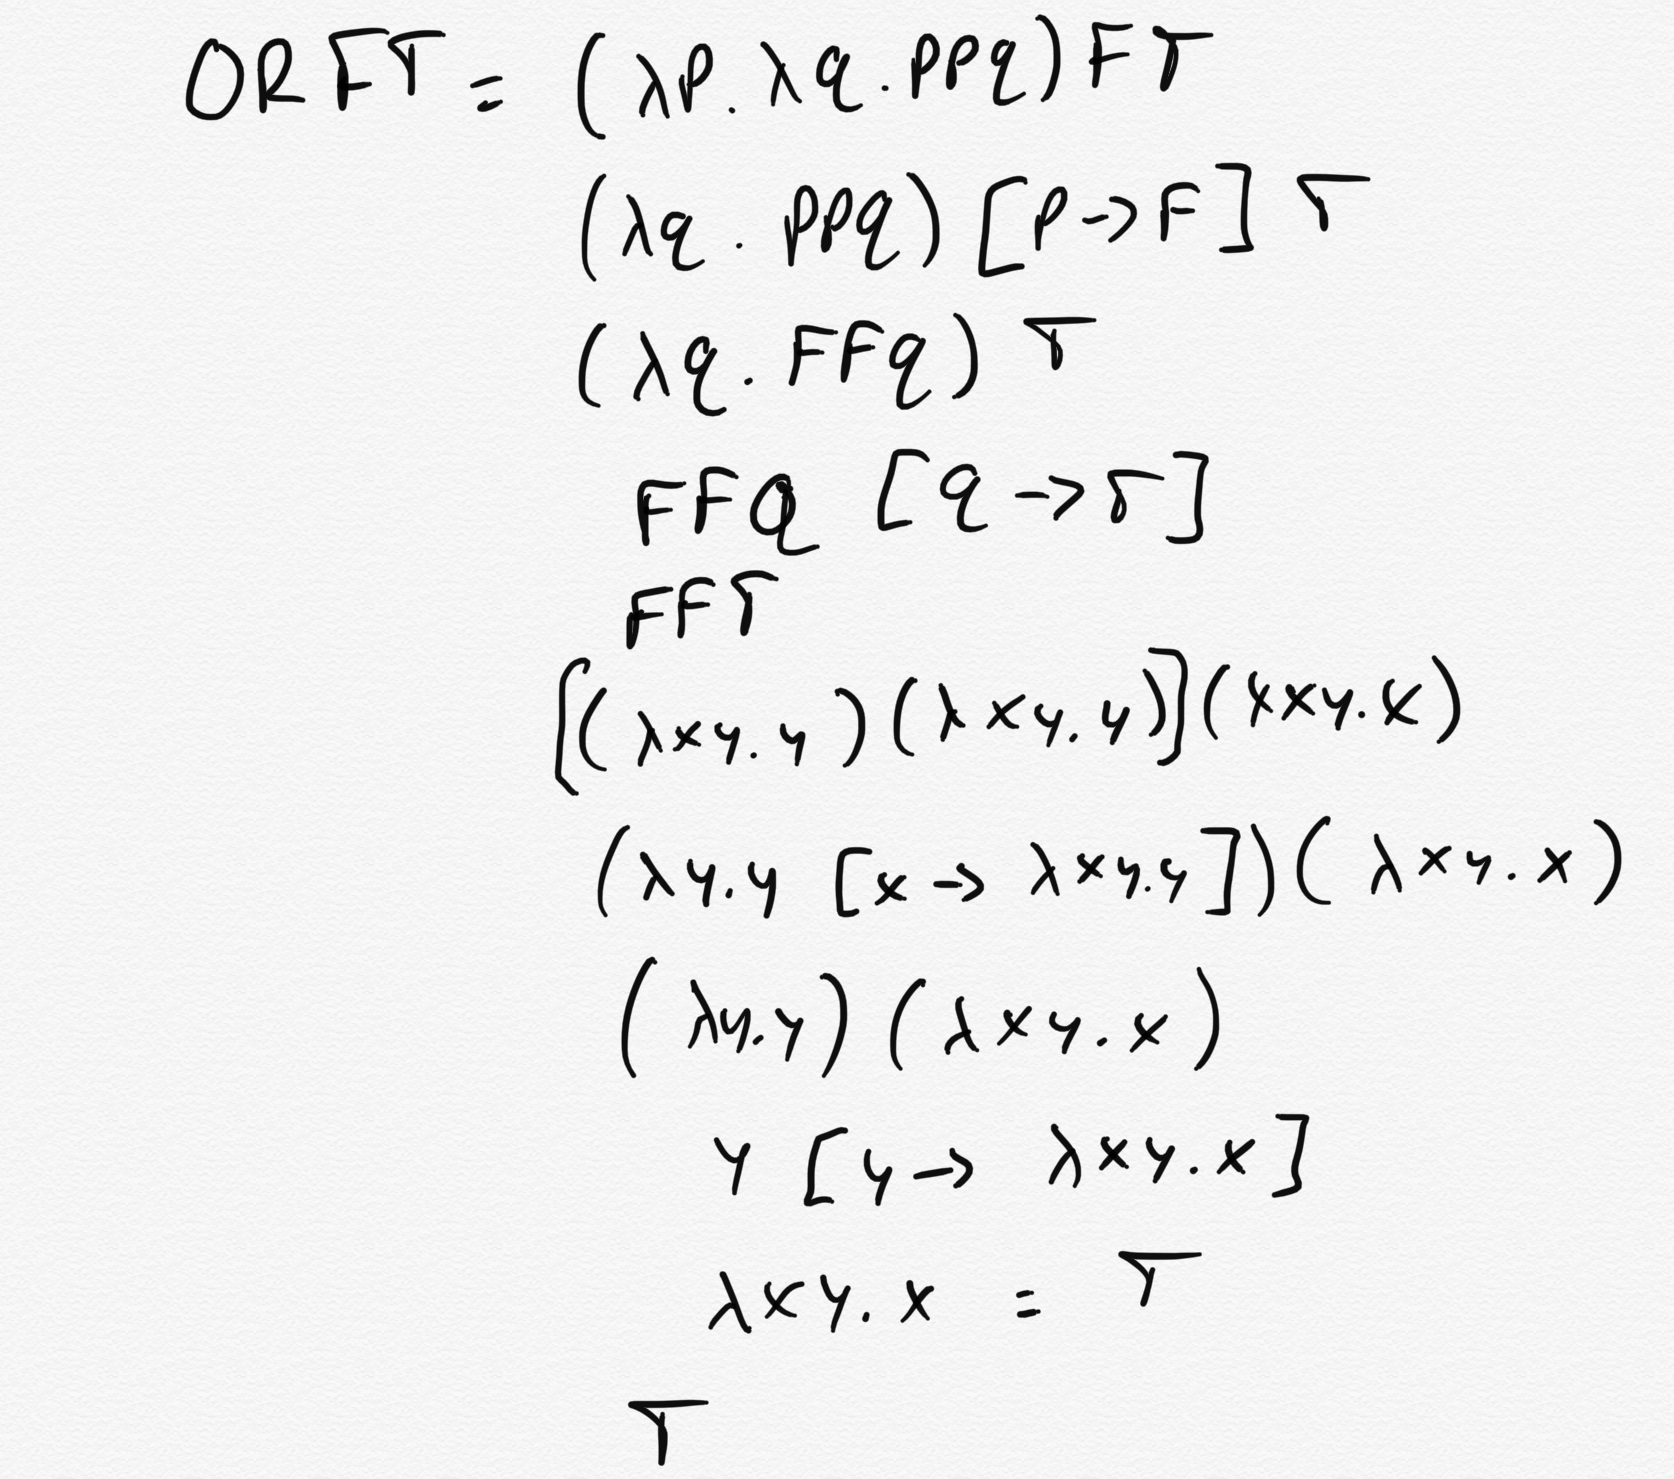 OR F T = (λp. λq. ppq) F T
(λq. ppq) [p → F] T
(λq. FFq) T
FFQ [q → T]
FFT
[(λxy.y)(λxy.y)](λxy.x)
(λy.y [x → λxy.y])(λxy.x)
(λy.y)(λxy.x)
y [y → λxy.x]
λxy.x = T
T